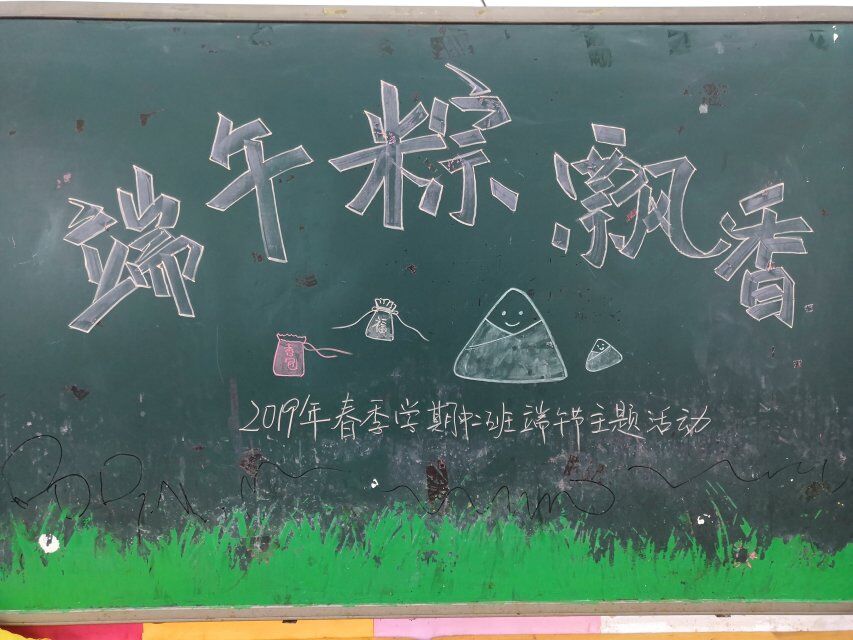 端午粽飘香
香包
福
2019年春季学期中二班端午节主题活动